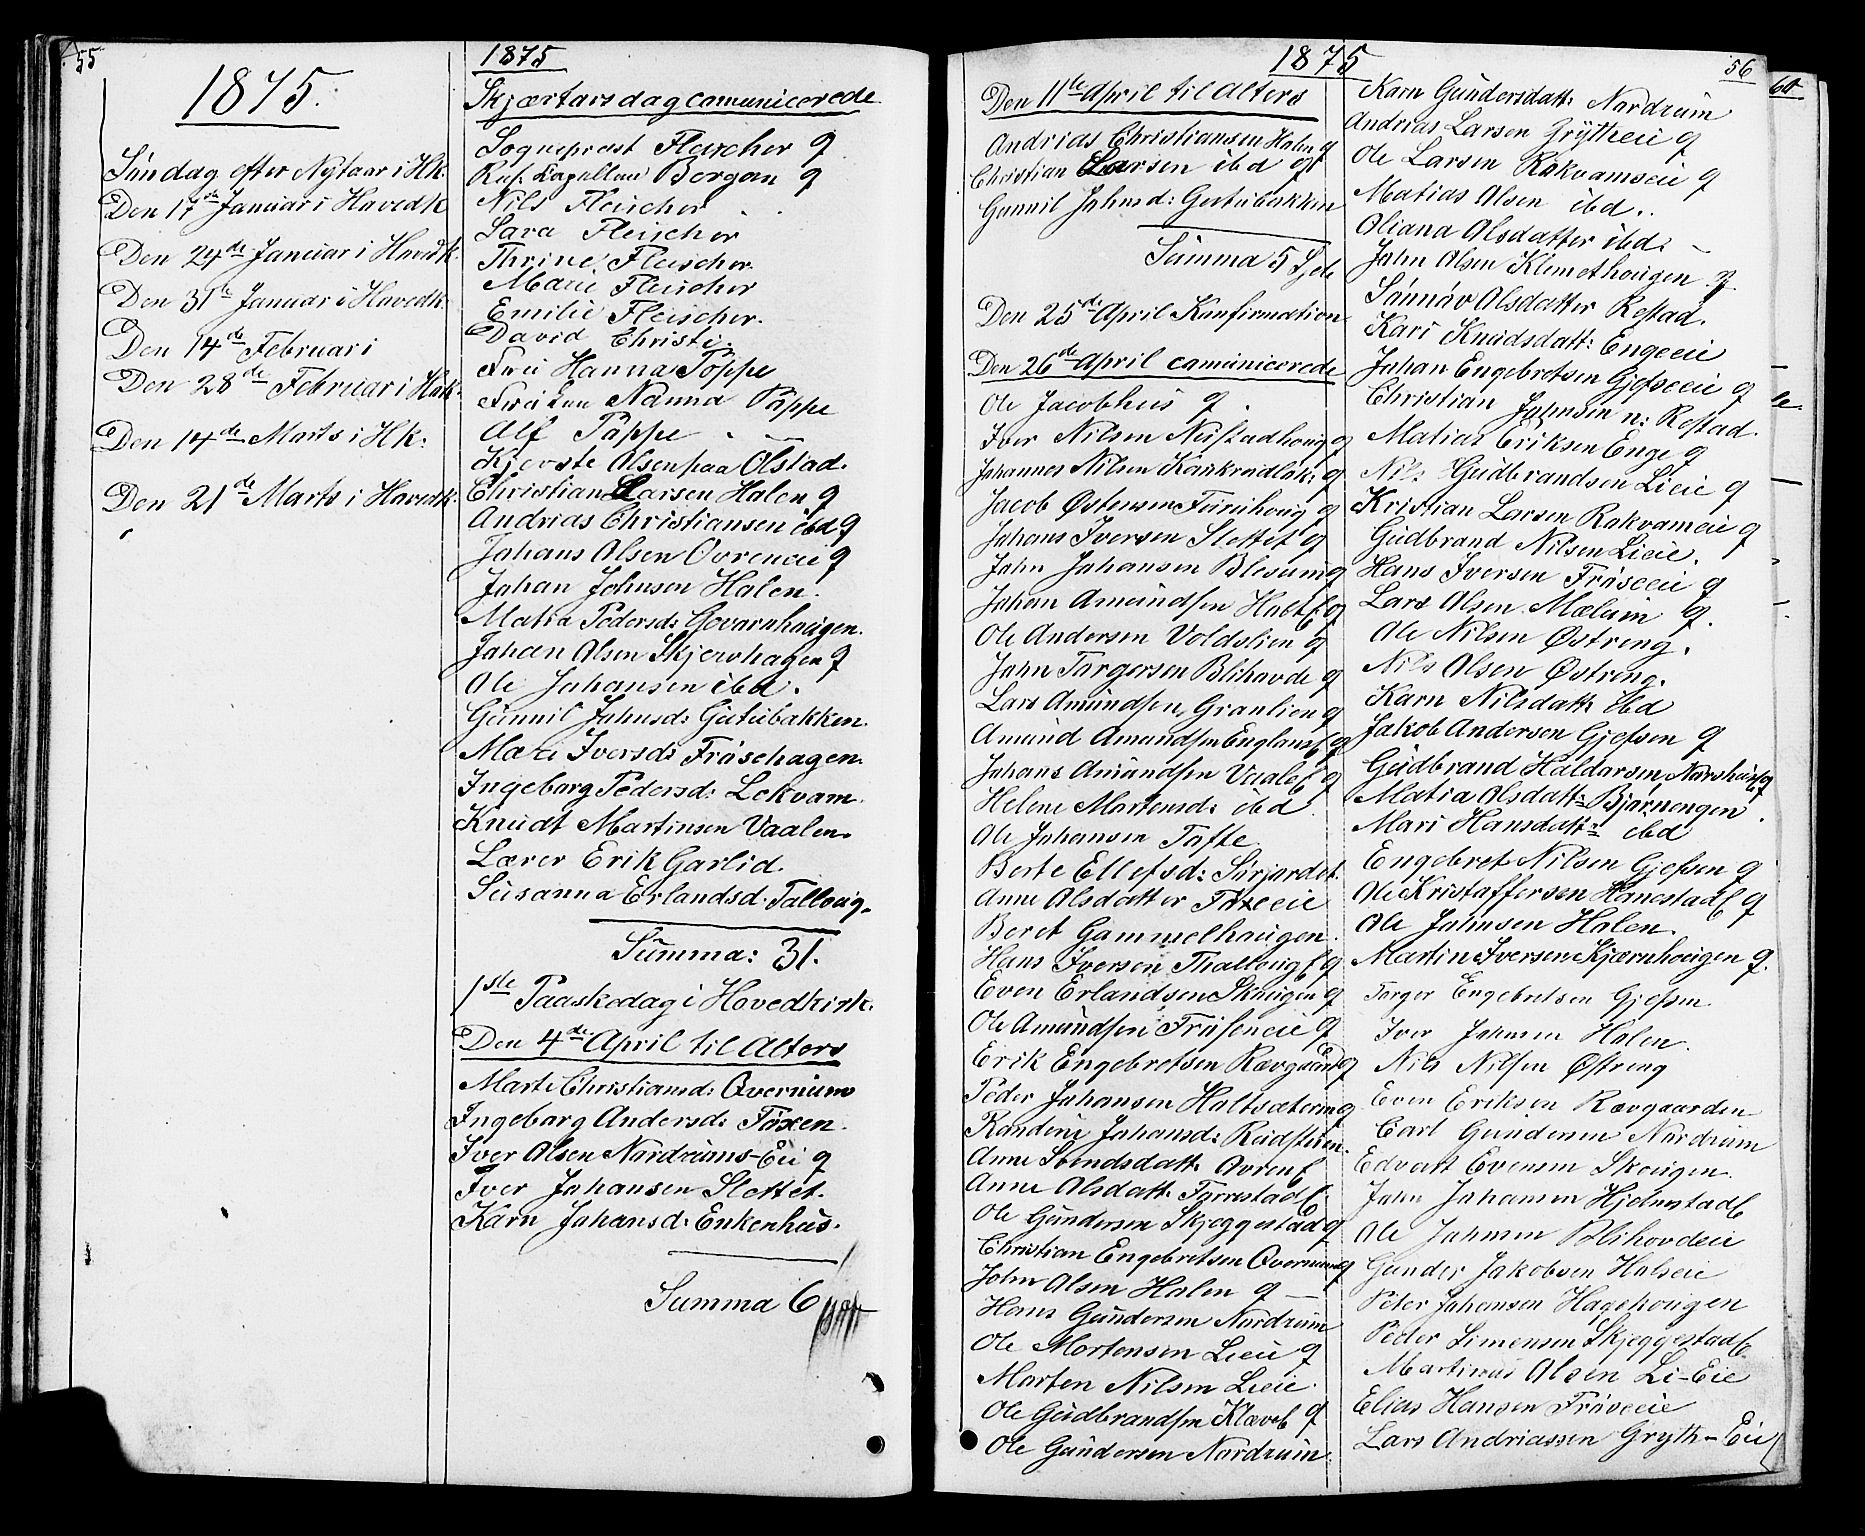 55
1875.
Søndag efter Nytaar i Hk.
Den 17de Januar i Hovedk
Den 24de Januar i Hovedk.
Den 31te Januar i Hovedk.
Den 14de Februar i
Den 28de Februar i Hok.
Den 14de Marts i Hk.
Den 21de Marts i Hovedk.
1875
Skjærtorsdag comunicerede
Sogneprest Fleischer q
Res. Kapellan Borgen q
Nils Fleischer
Sara Fleischer
Thrine Fleischer
Marie Fleischer
Emilie Fleischer.
David Christi.
Fru Hanna Poppe
Frøken Nanna Poppe
Alf Poppe
Kjerste Olsen paa Olstad.
Christian Larsen Holen q
Andrias Christiansen ibd q
Johans Olsen Ovreneie q
Johan Johnsen Holen.
Matia Pedersd: Govarnhougen.
Johan Olsen Skjervhagen q
Ole Johansen ibd.
Gunnil Johnsd: Gutubakken.
Mari Iversd: Frøsehagen.
Ingeborg Pedersd: Lekvam.
Knudt Martinsen Vaalen.
Lærer Erik Garlid.
Susanna Erlandsd. Talloug.
Summa: 31.
1ste Paaskedag i Hovedkirk.
Den 4de April til Alters
Marte Christiansd: Overnum
Ingeborg Andersd: Foxen.
Iver Olsen Nordrums-Eie q
Iver Johansen Slettet.
Karn Johansd. Enkenhus.
Summa 6
1875
56
60
Den 11te April til Alters
Andrias Christiansen Holen q
Christian Larsen ibd q
Gunnil Johnsd: Gutubakken
Summa 5 Sjele
Den 25de April Konfirmation
Den 26de April comunicerede
Ole Jacobhus q.
Iver Nilsen Neistadhoug q
Johannes Nilsen Kankrudløk: q
Jacob Østensen Furuhoug q
Johans Iversen Slettet q
John Johansen Blesum q
Johan Amundsen Holt q
Ole Andersen Voldslien q
John Torgersen Blihovde q
Lars Amundsen, Granlien q
Amund Amundsen Englaus q
Johans Amundsen Vaale q
Helene Mortensd: ibd
Ole Johansen Tofte
Berte Ellefsd: Sirjordet.
Anne Olsdatter Foxeeie
Beret Gammelhaugen.
Hans Iversen Thalloug q
Even Erlandsen Skougen q
Ole Amundsen Frøseneie q
Erik Engebretsen Rævgaard q
Peder Johansen Holtsæteren q
Randine Johansd: Rudsteien.
Anne Svendsdatt. Ovren
Anne Olsdatt. Forrestad
Ole Gundersen Skjeggestad q
Christian Engebretsen Overnum q
John Olsen Holen q
Hans Gundersen Nordrum
Ole Mortensen Lieie q
Morten Nilsen Lieie.
Ole Gudbrandsen Kleve q
Ole Gundersen Nordrum.
Karn Gundersdatt: Nordrum
Andrias Larsen Gryteeie q
Ole Larsen Rokvamseie q
Matias Olsen ibd..
Oliana Olsdatter ibd:
John Olsen Klemethougen q.
Sønnøv Olsdatter Rostad.
Kari Knudsdatt: Engeeie
Johan Engebretsen Gjefseeie q
Christian Johnsen n: Rostad.
Matias Eriksen Enge q
Nils Gudbrandsen Lieie q
Kristian Larsen Rokvameie q
Gudbrand Nilsen Lieie.
Hans Iversen Frøseeie q
Lars Olsen Mælum q.
Ole Nilsen Østreng.
Nils Olsen Østreng.
Karn Nilsdatt. ibd
Jakob Andersen Gjefsen q
Gudbrand Haldorsen Norshus q
Matia Olsdatt: Bjørnengen.
Mari Hansdatt: ibd
Engebret Nilsen Gjefsen q
Ole Kristoffersen Honestad q
Ole Johnsen Holen.
Martin Iversen Kjærnhougen q.
Torger Engebretsen Gjefsen
Iver Johnsen Holen.
Nils Nilsen Østreng
Even Eriksen Rævgaarden
Carl Gundersen Nordrum
Edvart Evensen Skougen.
John Johansen Hjelmestad
Ole Johnsen Blihovdeie
Gunder Jakobsen Holseie
Peter Johansen Hagehougen
Peder Simensen Skjeggestad
Martinus Olsen Li-Eie
Elias Hansen Frøveeie
Lars Andriassen Gryth-Eie